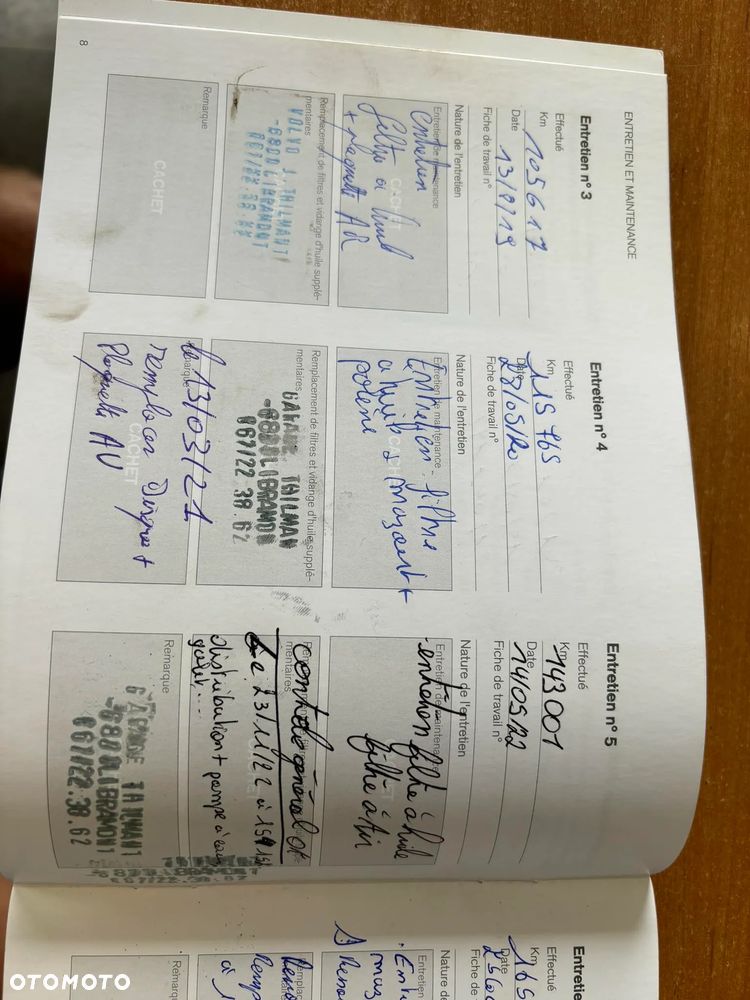 ENTRETIEN ET MAINTENANCE
Entretien n° 3
Effectué
Km 105617
Date 13/9/19
Fiche de travail n°
Nature de l'entretien
Entretien de maintenance
CACHET
entretien
filtre à huile
+ plaquette AR
Remplacement de filtres et vidange d'huile supplé-
mentaires
VOLVO J. THILMANT
-6800 LIBRAMONT
061/22.38.62
Remarque
CACHET
8
Entretien n° 4
Effectué
Km 115765
Date 29/05/20
Fiche de travail n°
Nature de l'entretien
Entretien de maintenance
CACHET
Entretien - filtre
à huile + mazout +
polène
Remplacement de filtres et vidange d'huile supplé-
mentaires
GARAGE THILMAN
-6800 LIBRAMON
061/22.38.62
Remarque
CACHET
le 13/03/21
remplacer Disques +
Plaquette AV
Entretien n° 5
Effectué
Km 143001
Date 14/05/22
Fiche de travail n°
Nature de l'entretien
Entretien de maintenance
entretien filtre à huile
filtre à air
mentaires
contrôle général OK
Le 23/11/22 à
distribution + pompe à eau
galet...
Remarque
GARAGE THILMANT
-6800 LIBRAMONT
061/22.38.62
061/22.38.62
Entretie
Effectué
Km 165
Date
Fiche de
Nature de
Entretien
Remarq
OTOMOTO